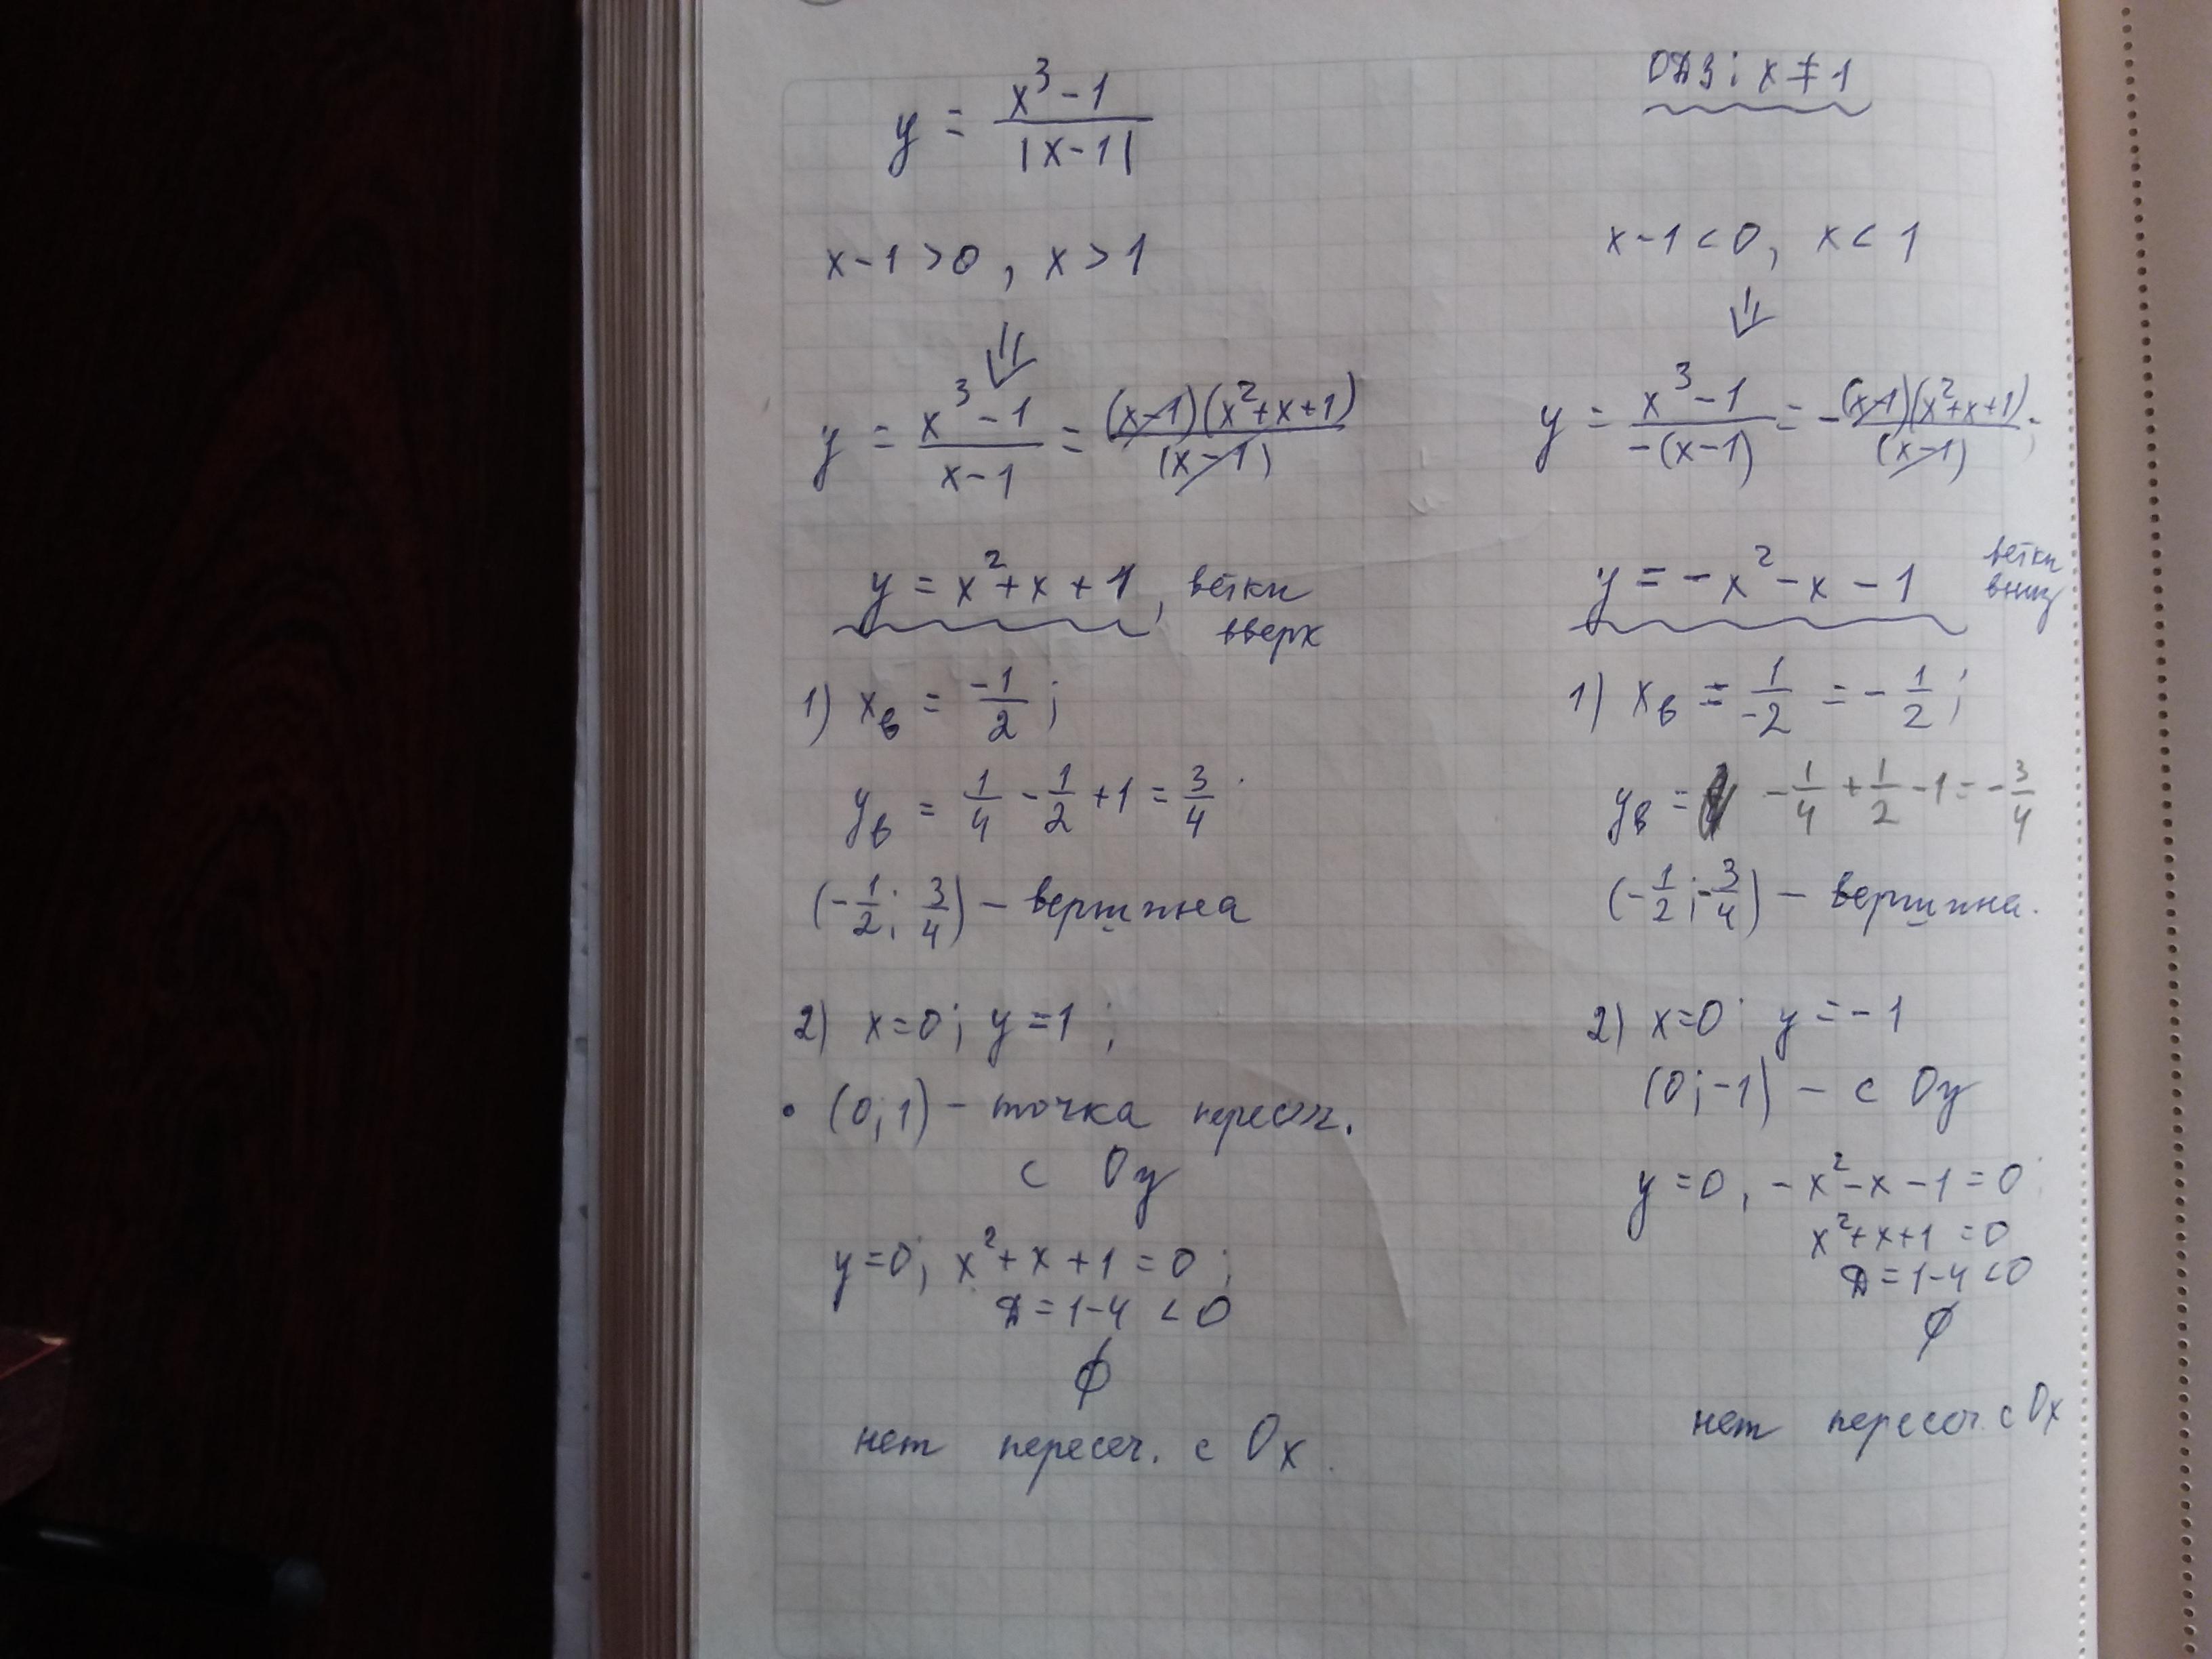 y = x³-1 / |x-1|
ОДЗ: x ≠ 1
x-1 > 0, x > 1
⇓
y = x³-1 / x-1 = (x-1)(x²+x+1) / (x-1)
y = x²+x+1, ветки
вверх
1) xв = -1/2;
yв = 1/4 - 1/2 + 1 = 3/4
(-1/2; 3/4) - вершина
2) x=0; y=1;
• (0;1) - точка пересеч.
с Oy
y=0; x²+x+1=0;
Д=1-4 <0
∅
нет пересеч. с Ox.
x-1 < 0, x < 1
⇓
y = x³-1 / -(x-1) = -(x-1)(x²+x+1) / (x-1);
y = -x²-x-1 ветки
вниз
1) xв = 1/-2 = -1/2;
yв = -1/4 + 1/2 - 1 = -3/4
(-1/2; -3/4) - вершина.
2) x=0; y=-1
(0;-1) - с Oy
y=0, -x²-x-1=0
x²+x+1=0
Д=1-4<0
∅
нет пересеч. с Ox